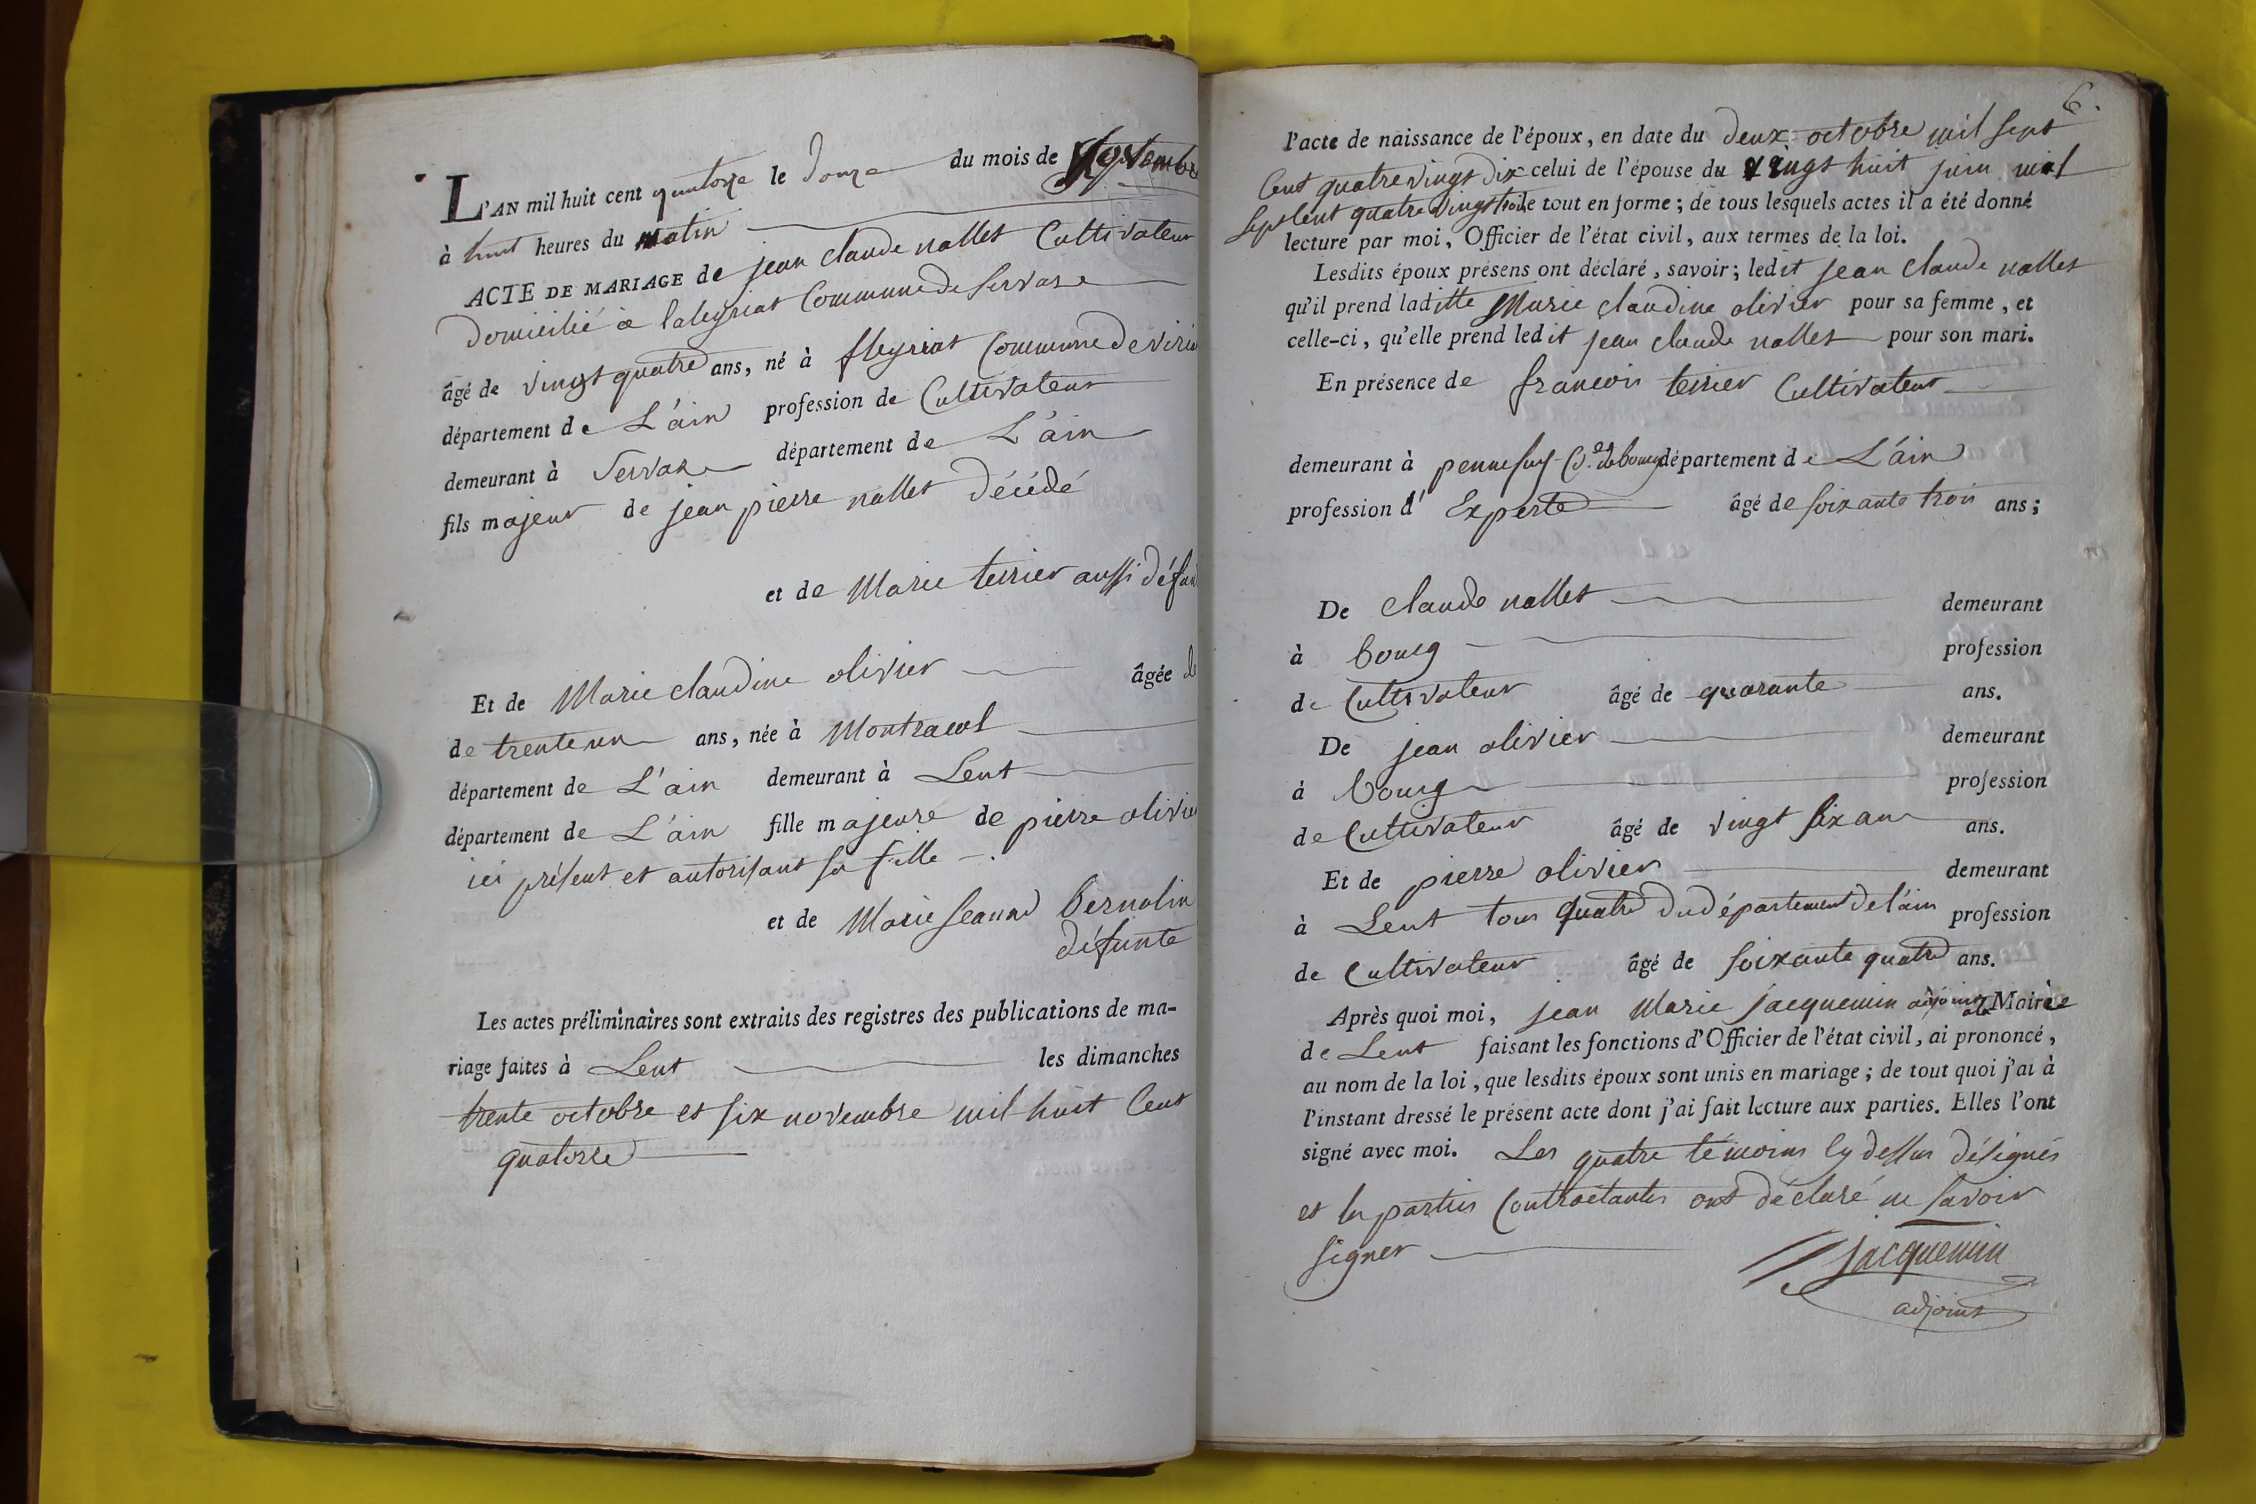 L'AN mil huit cent quatorze le douze du mois de Novembre
à huit heures du matin
ACTE DE MARIAGE de jean claude nallet Cultivateur
Domicilié à laleyriat Commune de Servas
âgé de vingt quatre ans, né à fleyriat Commune de viria
département de L'ain profession de Cultivateur
demeurant à Servas département de L'ain
fils majeur de jean pierre nallet décédé
et de Marie terrier aussi défun
Et de Marie claudine olivier âgée de
de trente un ans, née à Montracol
département de L'ain demeurant à Lent
département de L'ain fille majeure de pierre olivie
ici présent et autorisant sa fille
et de Marie jeanne Bernolin
défunte
Les actes préliminaires sont extraits des registres des publications de ma-
riage faites à Lent les dimanches
trente octobre et six novembre mil huit Cent
quatorze
6.
l'acte de naissance de l'époux, en date du deux octobre mil sept
Cent quatre vingt dix celui de l'épouse du vingt huit juin mil
sept Cent quatre vingt trois le tout en forme; de tous lesquels actes il a été donné
lecture par moi, Officier de l'état civil, aux termes de la loi.
Lesdits époux présens ont déclaré, savoir; ledit jean claude nallet
qu'il prend laditte Marie claudine olivier pour sa femme, et
celle-ci, qu'elle prend ledit jean claude nallet pour son mari.
En présence de francois terrier Cultivateur
demeurant à pennesuy de bourg département de L'ain
profession d' Experte âgé de soixante trois ans;
De claude nallet demeurant
à bourg profession
de Cultivateur âgé de quarante ans.
De jean olivier demeurant
à bourg profession
de Cultivateur âgé de vingt six an ans.
Et de pierre olivier demeurant
à Lent tous quatre du département de l'ain profession
de Cultivateur âgé de soixante quatre ans.
Après quoi moi, jean Marie jacquemin adjoint a la Mairie
de Lent faisant les fonctions d'Officier de l'état civil, ai prononcé,
au nom de la loi, que lesdits époux sont unis en mariage; de tout quoi j'ai à
l'instant dressé le présent acte dont j'ai fait lecture aux parties. Elles l'ont
signé avec moi. Les quatre témoins cy dessus désignés
et les parties Contractantes ont déclaré ne savoir
signer
Jacquemin
adjoint